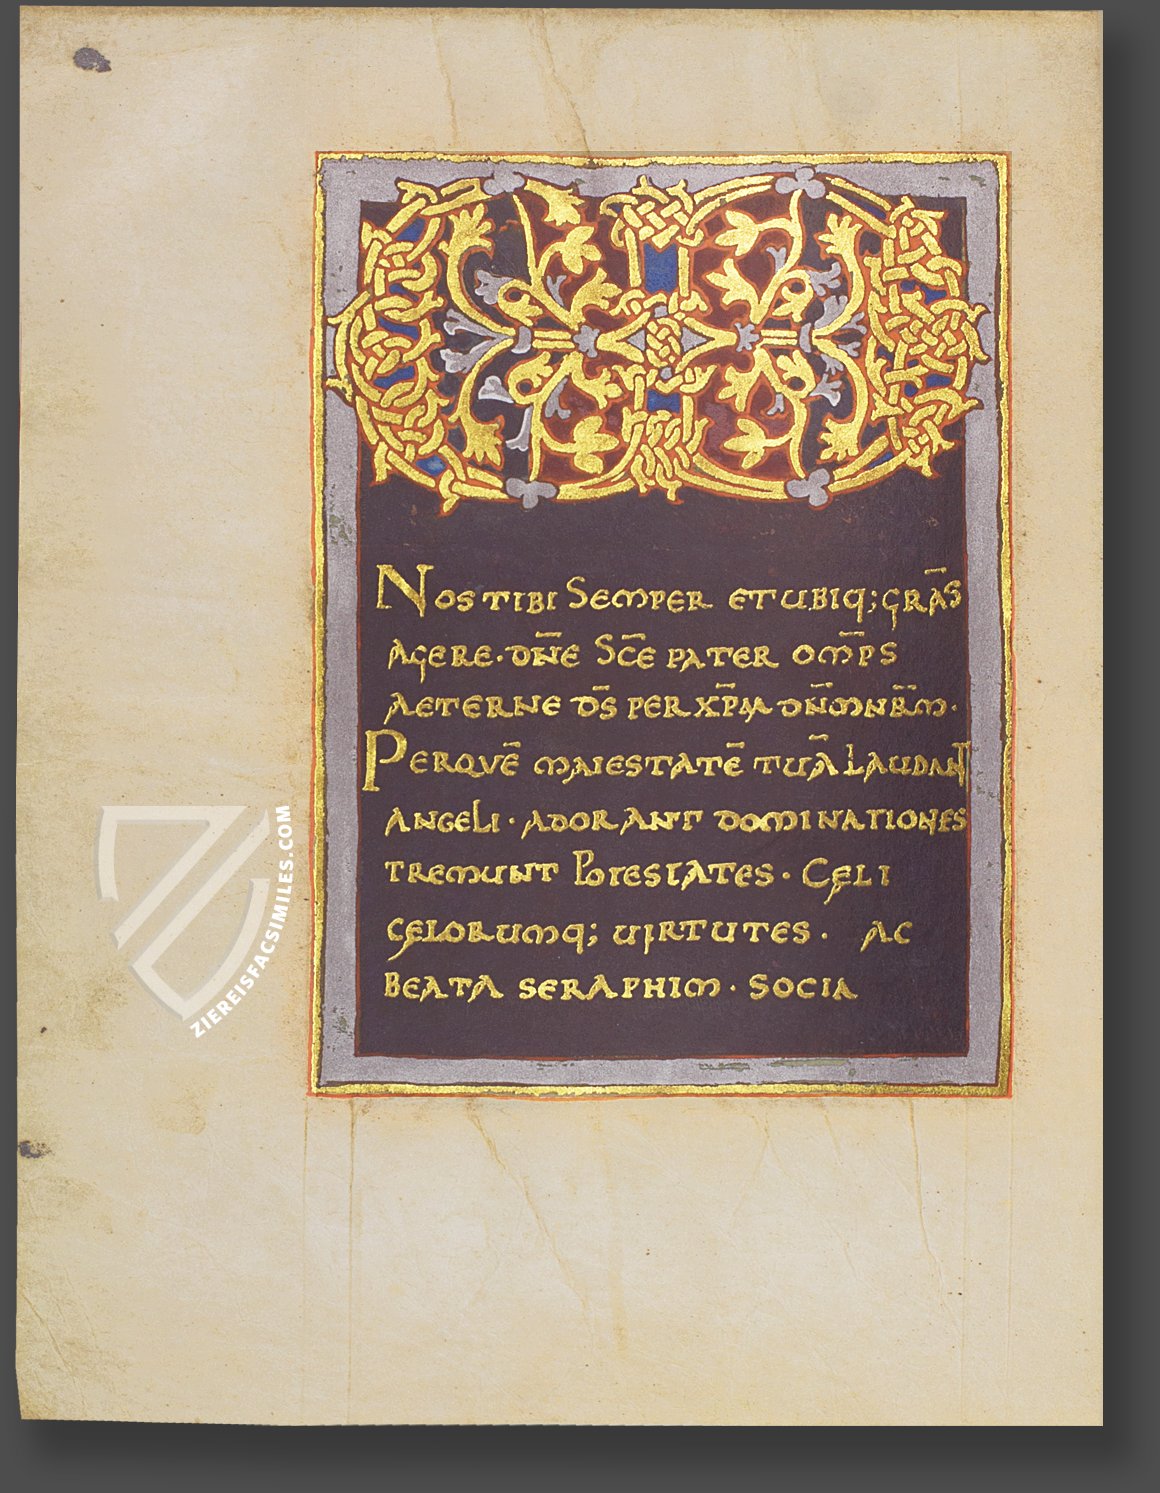 Nos tibi Semper et ubiq; grās
agere. dn̄e Sc̄e pater om̄ps
aeterne ds̄ per xp̄m dn̄m nr̄m.
Per quē maiestatē tuā Laudant
angeli. adorant dominationes
tremunt Potestates. Cęli
cęlorumq; uirtutes. ac
Beata seraphim. socia
ZIEREISFACSIMILES.COM